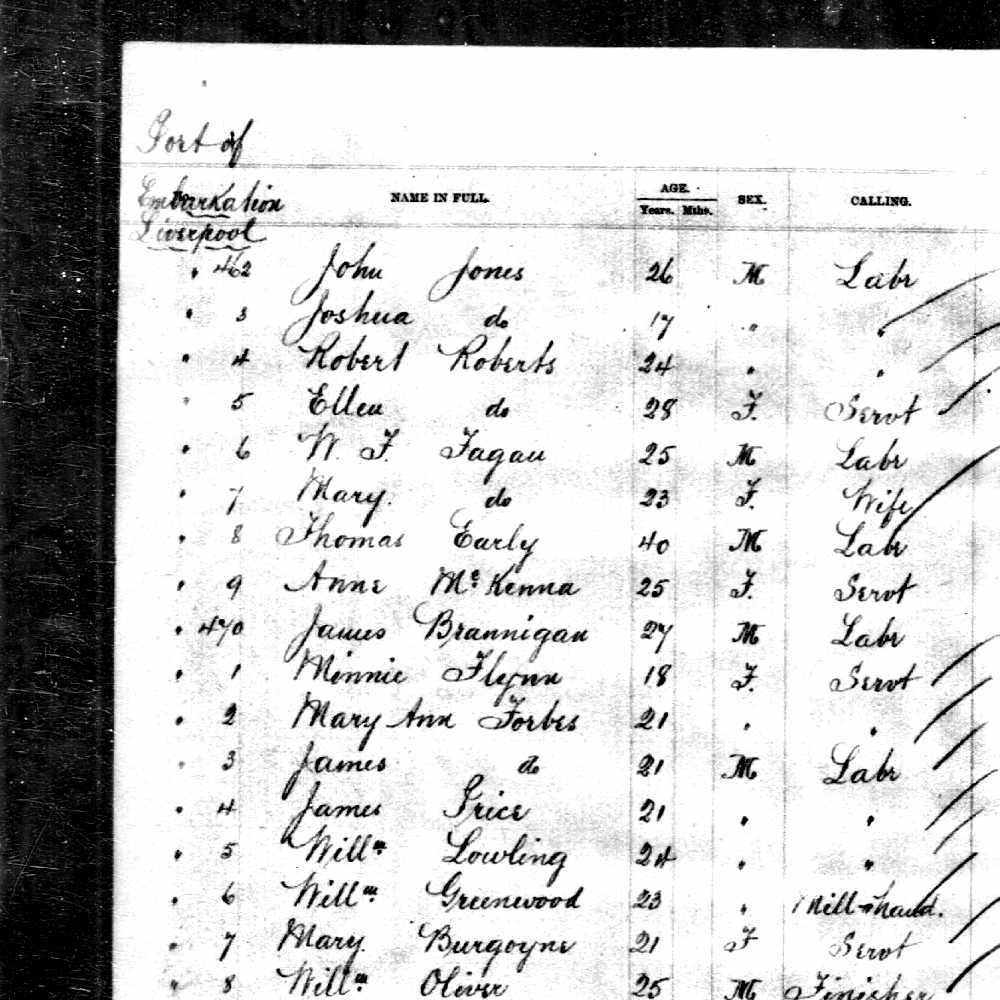 Port of
Embarkation NAME IN FULL. AGE. Years. Mths. SEX. CALLING.
Liverpool
" 462 John Jones 26 M Labr
" 3 Joshua do 17 " "
" 4 Robert Roberts 24 " "
" 5 Ellen do 28 F. Servt
" 6 W. F. Fagan 25 M Labr
" 7 Mary. do 23 F. Wife
" 8 Thomas Early 40 M Labr
" 9 Anne McKenna 25 F. Servt
" 470 James Brannigan 27 M Labr
" 1 Minnie Flynn 18 F. Servt
" 2 Mary Ann Forbes 21 " "
" 3 James do 21 M Labr
" 4 James Grice 21 " "
" 5 Willm Lowling 24 " "
" 6 Willm Greenwood 23 " Mill-hand.
" 7 Mary Burgoyne 21 F Servt
" 8 Willm Oliver 25 M Finisher